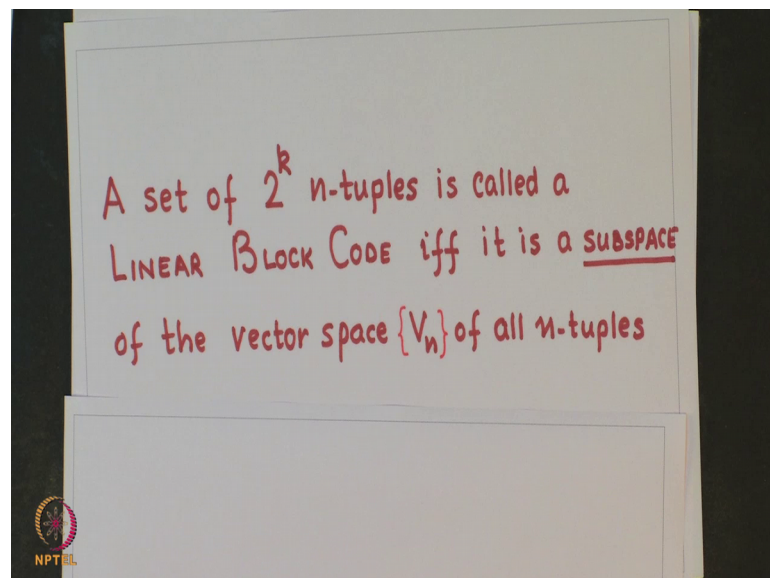 A set of 2^k n-tuples is called a
LINEAR BLOCK CODE iff it is a SUBSPACE
of the vector space {Vn} of all n-tuples
NPTEL